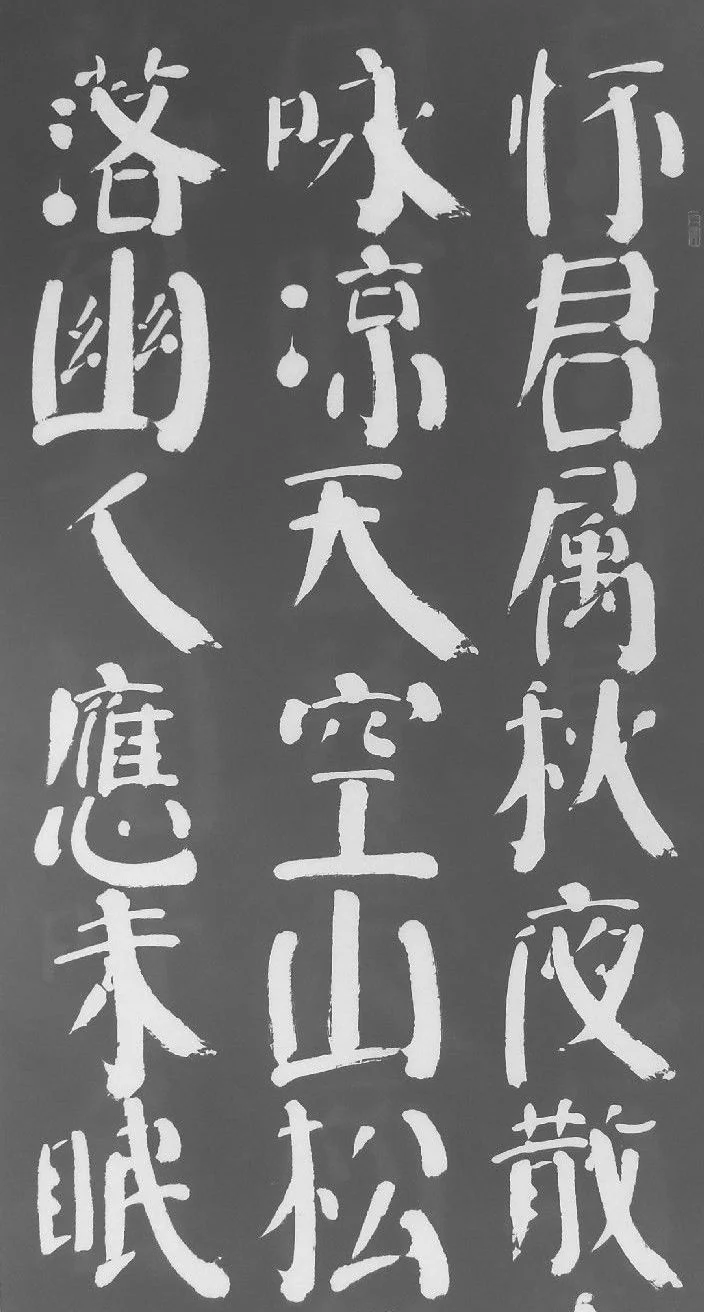 怀君属秋夜散
咏凉天空山松
落幽人應未眠